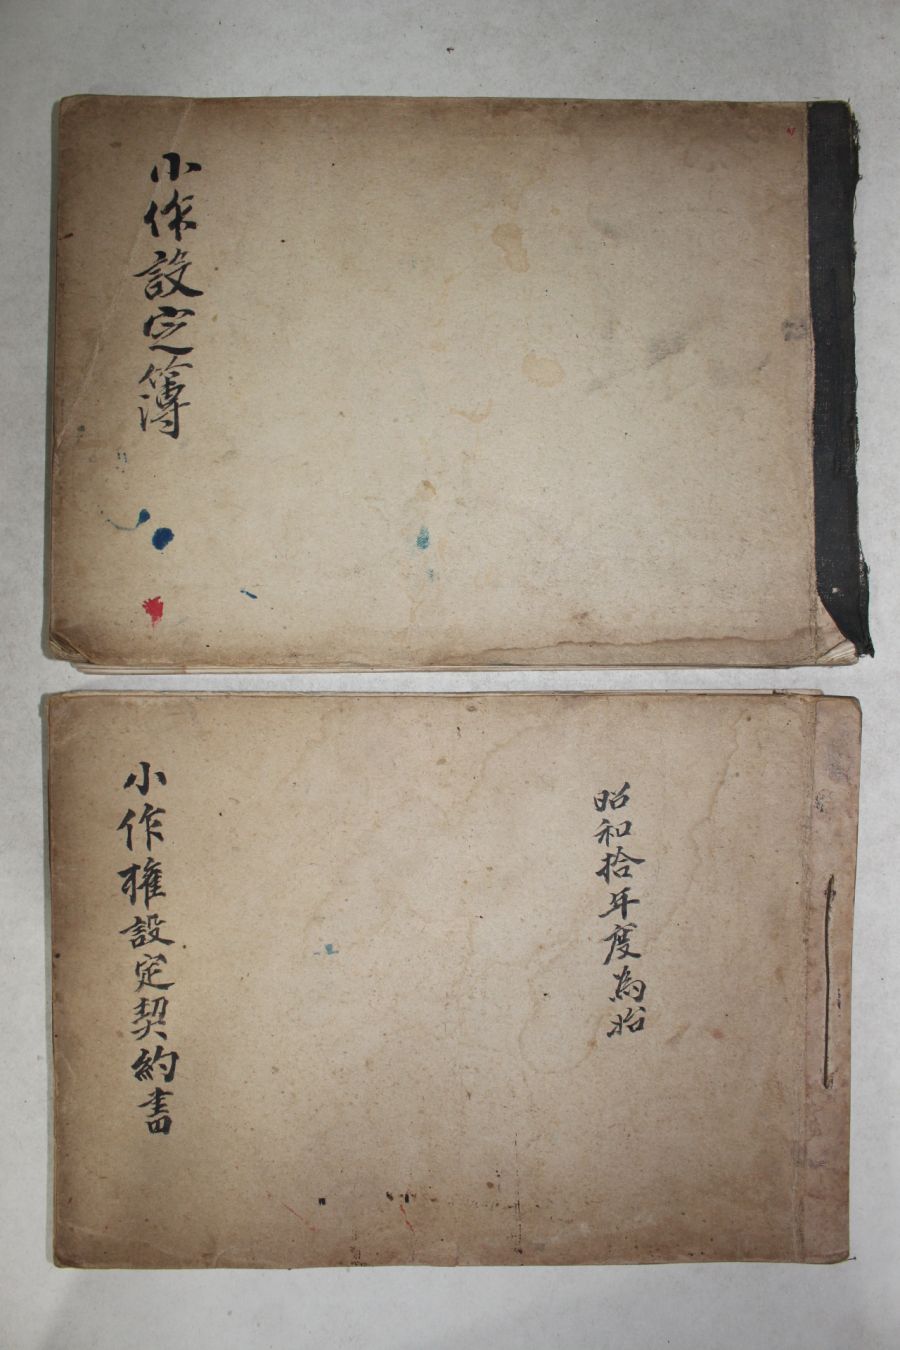 小作設定簿
昭和拾年度為始
小作權設定契約書